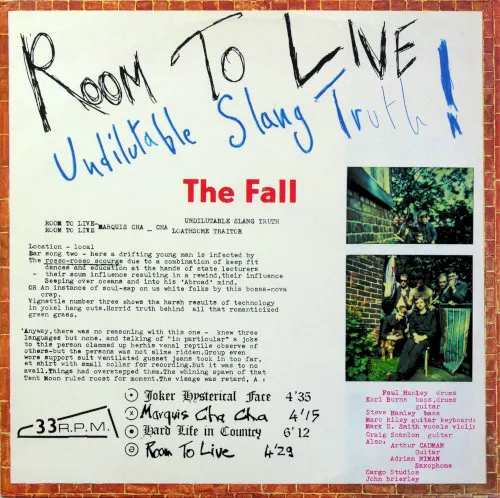 ROOM TO LIVE
Undilutable Slang Truth!
The Fall
UNDILUTABLE SLANG TRUTH
ROOM TO LIVE-MARQUIS CHA _ CHA LOATHSOME TRAITOR
ROOM TO LIVE
Location - local
Bar song two - here a drifting young man is infected by
The rosso-rosso scourge due to a combination of keep fit
dances and education at the hands of state lecturers
- their scum influence resulting in a rewind,their influence
Seeping over oceans and into his 'Abroad' mind.
OR An instance of soul-sap on us white folks by this bossa-nova
crap.
Vignettle number three shows the harsh results of technology
in yokel hang outs.Horrid truth behind all that romanticized
green grass.
'Anyway,there was no reasoning with this one - knew three
languages but none, and talking of "in particular" a joke
to this person clammed up herhis venal reptile observe of
others-but the persona was not slime ridden.Group even
wore support suit ventilated gusset jeans took in too far,
et shirt with small collar for recording.But it was to no
avail.Things had overstepped them.The whining spawn of that
Tent Moon ruled roost for moment.The visage was retard, A :
33 R.P.M.
Joker Hysterical Face 4'35
Marquis Cha Cha 4'15
Hard Life in Country 6'12
Room To Live 4'29
Paul Hanley drums
Karl Burns bass,drums
guitar
Steve Hanley bass
Marc Riley guitar keyboards
Mark E. Smith vocals violin
Craig Scanlon guitar
Also;
Arthur CADMAN
Guitar
Adrian NIMAN
Saxophone
Cargo Studios
John Brierley